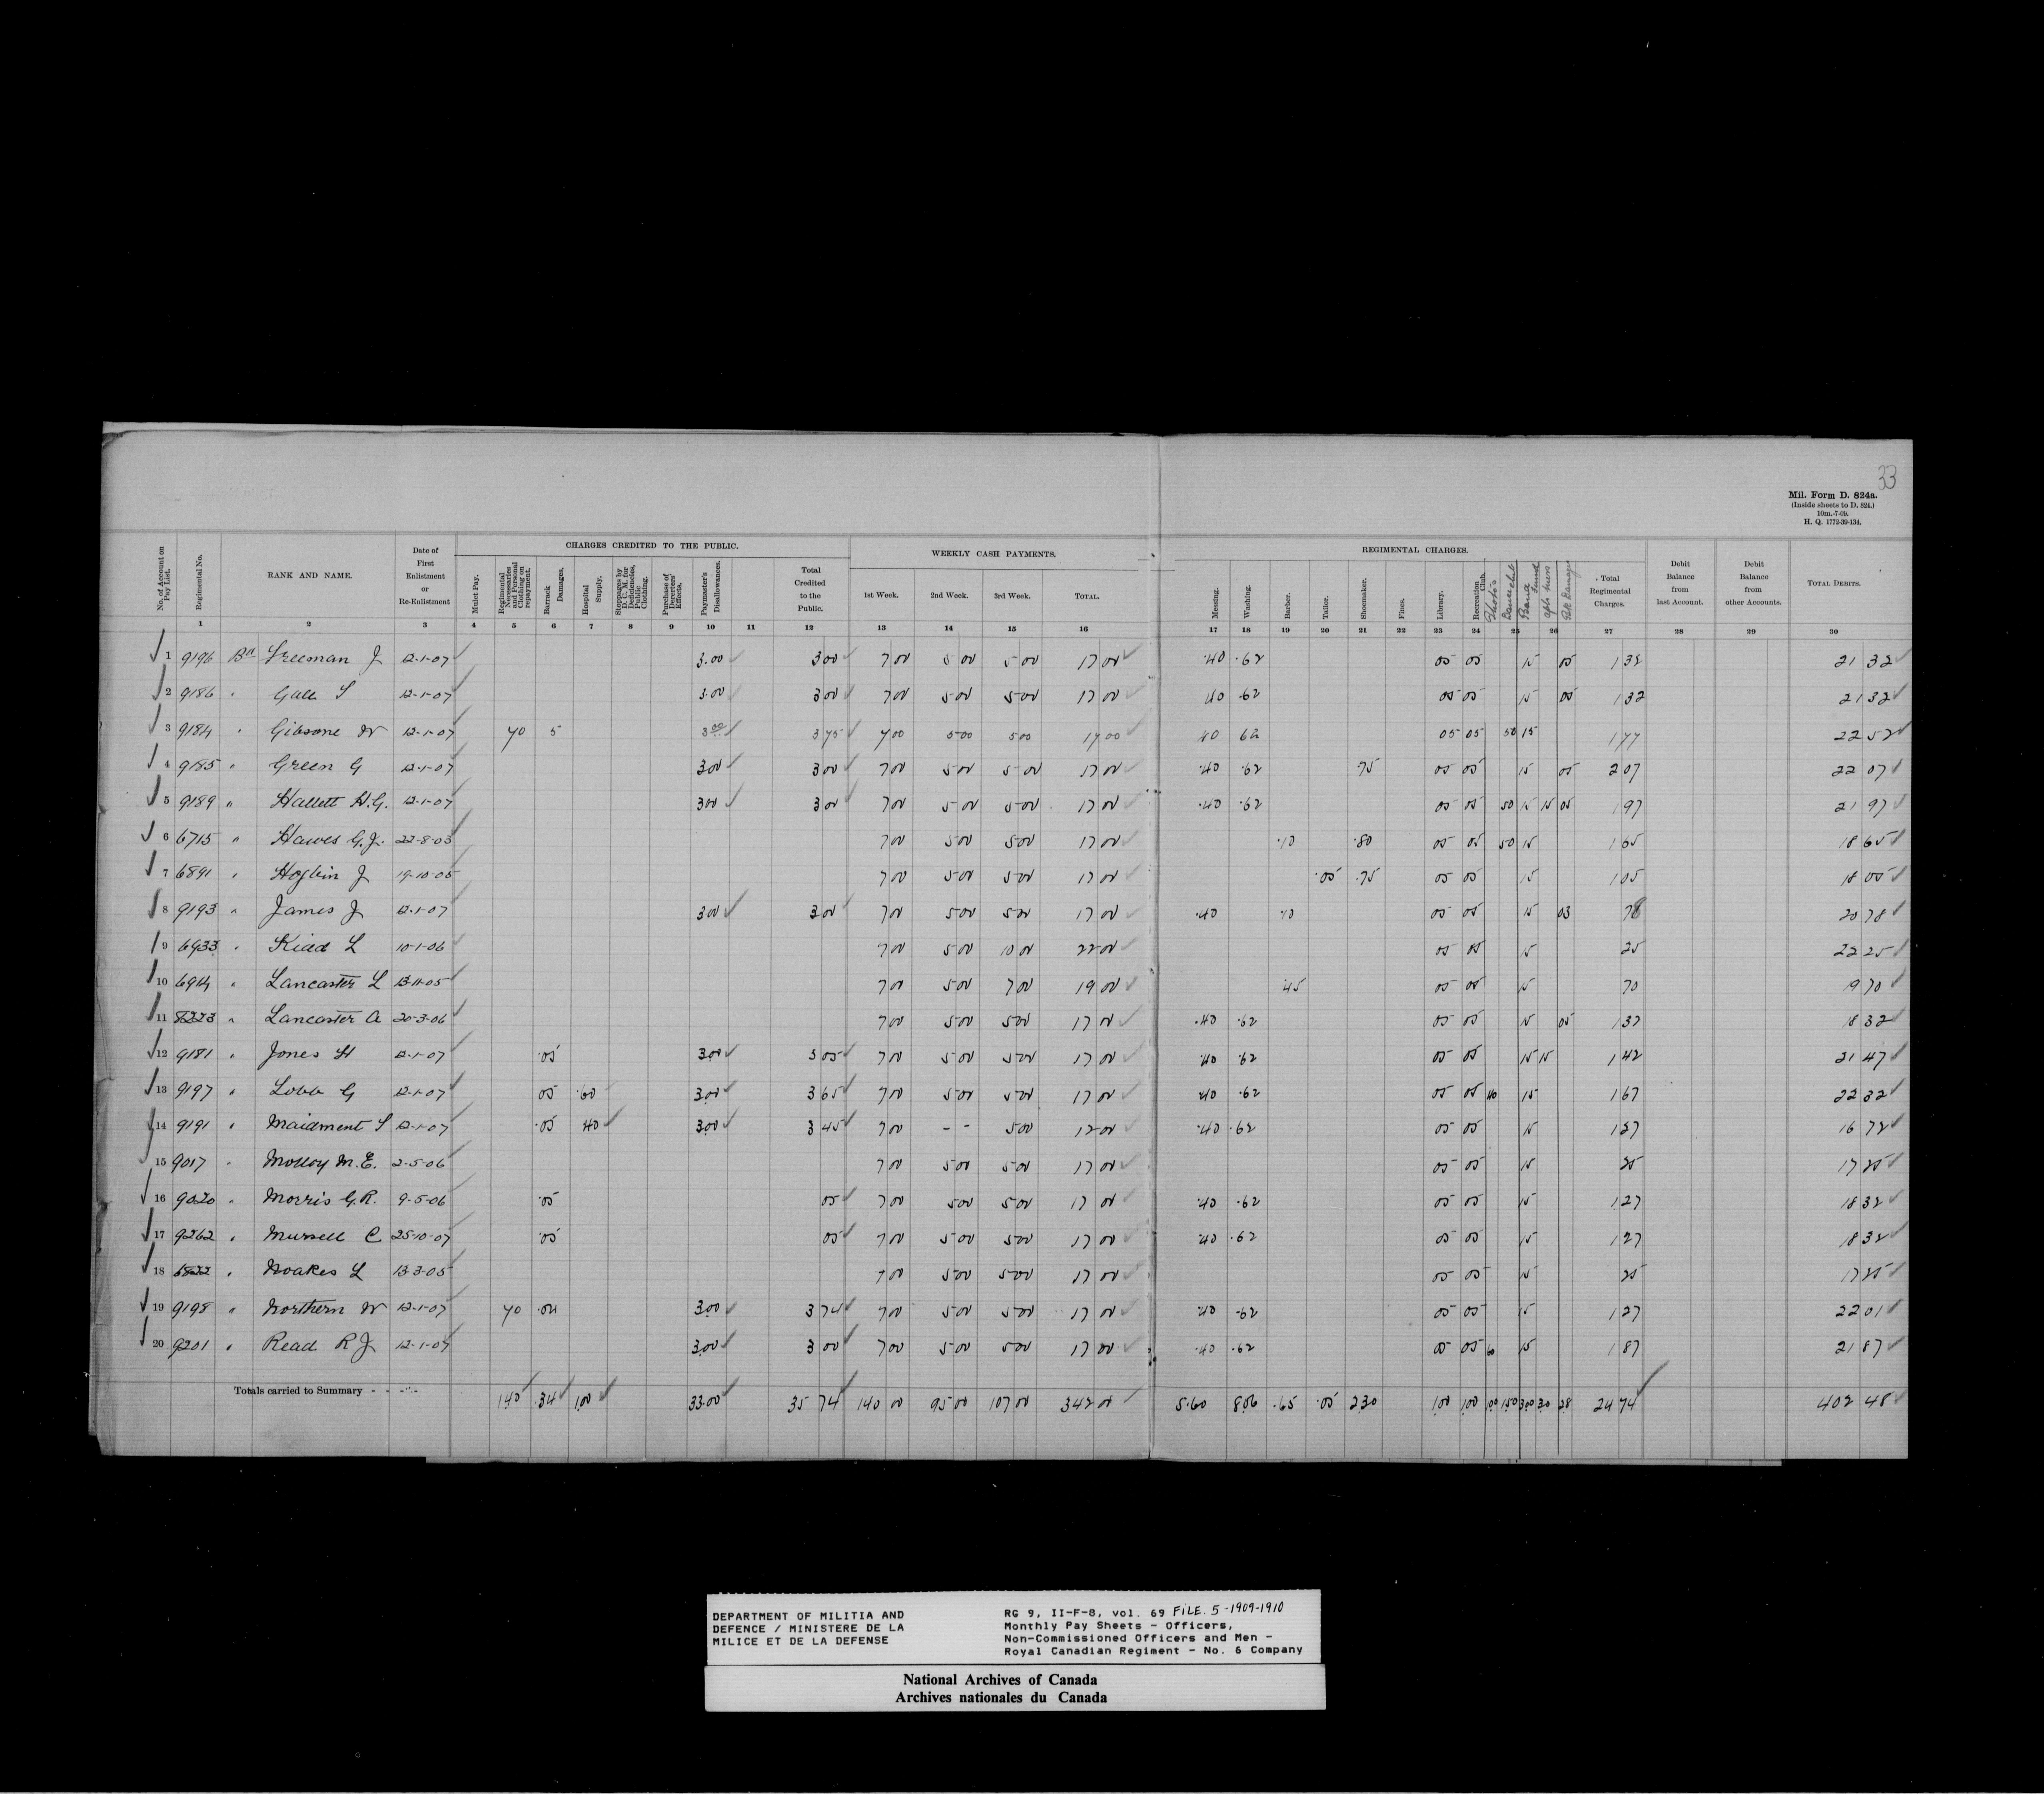 33
Mil. Form D. 824a.
(Inside sheets to D. 824.)
10m.-7-09.
H. Q. 1772-39-134.
No. of Account on Pay List. Regimental No. RANK AND NAME. Date of First Enlistment or Re-Enlistment CHARGES CREDITED TO THE PUBLIC. WEEKLY CASH PAYMENTS. REGIMENTAL CHARGES. Debit Balance from last Account. Debit Balance from other Accounts. TOTAL DEBITS.
Mulct Pay. Regimental Necessaries and Personal Clothing on repayment. Barrack Damages. Hospital Supply. Stoppages by D. U. M. for Deficiencies, Public Clothing. Purchase of Deserters' Effects. Paymaster's Disallowances. Total Credited to the Public. 1st Week. 2nd Week. 3rd Week. TOTAL. Messing. Washing. Barber. Tailor. Shoemaker. Fines. Library. Recreation Club. Photo's Dance club Band Fund Total Regimental Charges.
1 2 3 4 5 6 7 8 9 10 11 12 13 14 15 16 17 18 19 20 21 22 23 24 25 26 27 28 29 30
1 9196 Freeman J 12-1-07 3.00 3 00 7 00 5 00 5 00 17 00 .40 .62 05 05 15 05 1 32 21 32
2 9186 " Gall S 12-1-07 3.00 3 00 7 00 5 00 5 00 17 00 40 .62 05 05 15 05 1 32 21 32
3 9184 " Gibsone W 12-1-07 70 5 3.00 3 75 7 00 5 00 5 00 17 00 40 62 05 05 50 15 1 77 22 52
4 9185 " Green G 12-1-07 3 00 3 00 7 00 5 00 5 00 17 00 .40 .62 .75 05 05 15 05 2 07 22 07
5 9189 " Hallett H.G. 12-1-07 3 00 3 00 7 00 5 00 5 00 17 00 .40 .62 05 05 50 15 15 05 1 97 21 97
6 6715 " Hawes G.J. 22-8-03 7 00 5 00 5 00 17 00 .10 .80 05 05 50 15 1 65 18 65
7 6891 " Hogbin J 19-10-05 7 00 5 00 5 00 17 00 .05 .75 05 05 15 1 05 18 05
8 9193 " James J 12-1-07 3 00 3 00 7 00 5 00 5 00 17 00 .40 10 05 05 15 03 78 20 78
9 6933 " Kidd L 10-1-06 7 00 5 00 10 00 22 00 05 05 15 25 22 25
10 6914 " Lancaster L 13-11-05 7 00 5 00 7 00 19 00 45 05 05 15 70 19 70
11 8223 " Lancaster A 20-3-06 7 00 5 00 5 00 17 00 .40 .62 05 05 15 05 1 32 18 32
12 9181 " Jones H 12-1-07 .05 3.00 3 05 7 00 5 00 5 00 17 00 40 .62 05 05 15 15 1 42 21 47
13 9197 " Lobb G 12-1-07 05 .60 3.00 3 65 7 00 5 00 5 00 17 00 40 .62 05 05 40 15 1 67 22 32
14 9191 " Maidment S 12-1-07 .05 40 3.00 3 45 7 00 - - 5 00 12 00 .40 .62 05 05 15 1 27 16 72
15 9017 " Molloy M.E. 2-5-06 7 00 5 00 5 00 17 00 05 05 15 25 17 25
16 9020 " Morris G.R. 9-5-06 .05 05 7 00 5 00 5 00 17 00 .40 .62 05 05 15 1 27 18 32
17 9262 " Mursell C 25-10-07 .05 05 7 00 5 00 5 00 17 00 .40 .62 05 05 15 1 27 18 32
18 6822 " Noakes L 13-3-05 7 00 5 00 5 00 17 00 05 05 15 25 17 25
19 9198 " Northern W 12-1-07 70 .04 3.00 3 74 7 00 5 00 5 00 17 00 .40 .62 05 05 15 1 27 22 01
20 9201 " Read R J 12-1-07 3.00 3 00 7 00 5 00 5 00 17 00 .40 .62 05 05 60 15 1 87 21 87
Totals carried to Summary - - - 1.40 .34 1.00 33.00 35 74 140 00 95 00 107 00 342 00 5.60 8.06 .65 .05 2.30 1.00 1.00 1.00 1.50 3.00 30 28 24 74 402 48
DEPARTMENT OF MILITIA AND
DEFENCE / MINISTERE DE LA
MILICE ET DE LA DEFENSE
RG 9, II-F-8, vol. 69 FILE. 5-1909-1910
Monthly Pay Sheets - Officers,
Non-Commissioned Officers and Men -
Royal Canadian Regiment - No. 6 Company
National Archives of Canada
Archives nationales du Canada